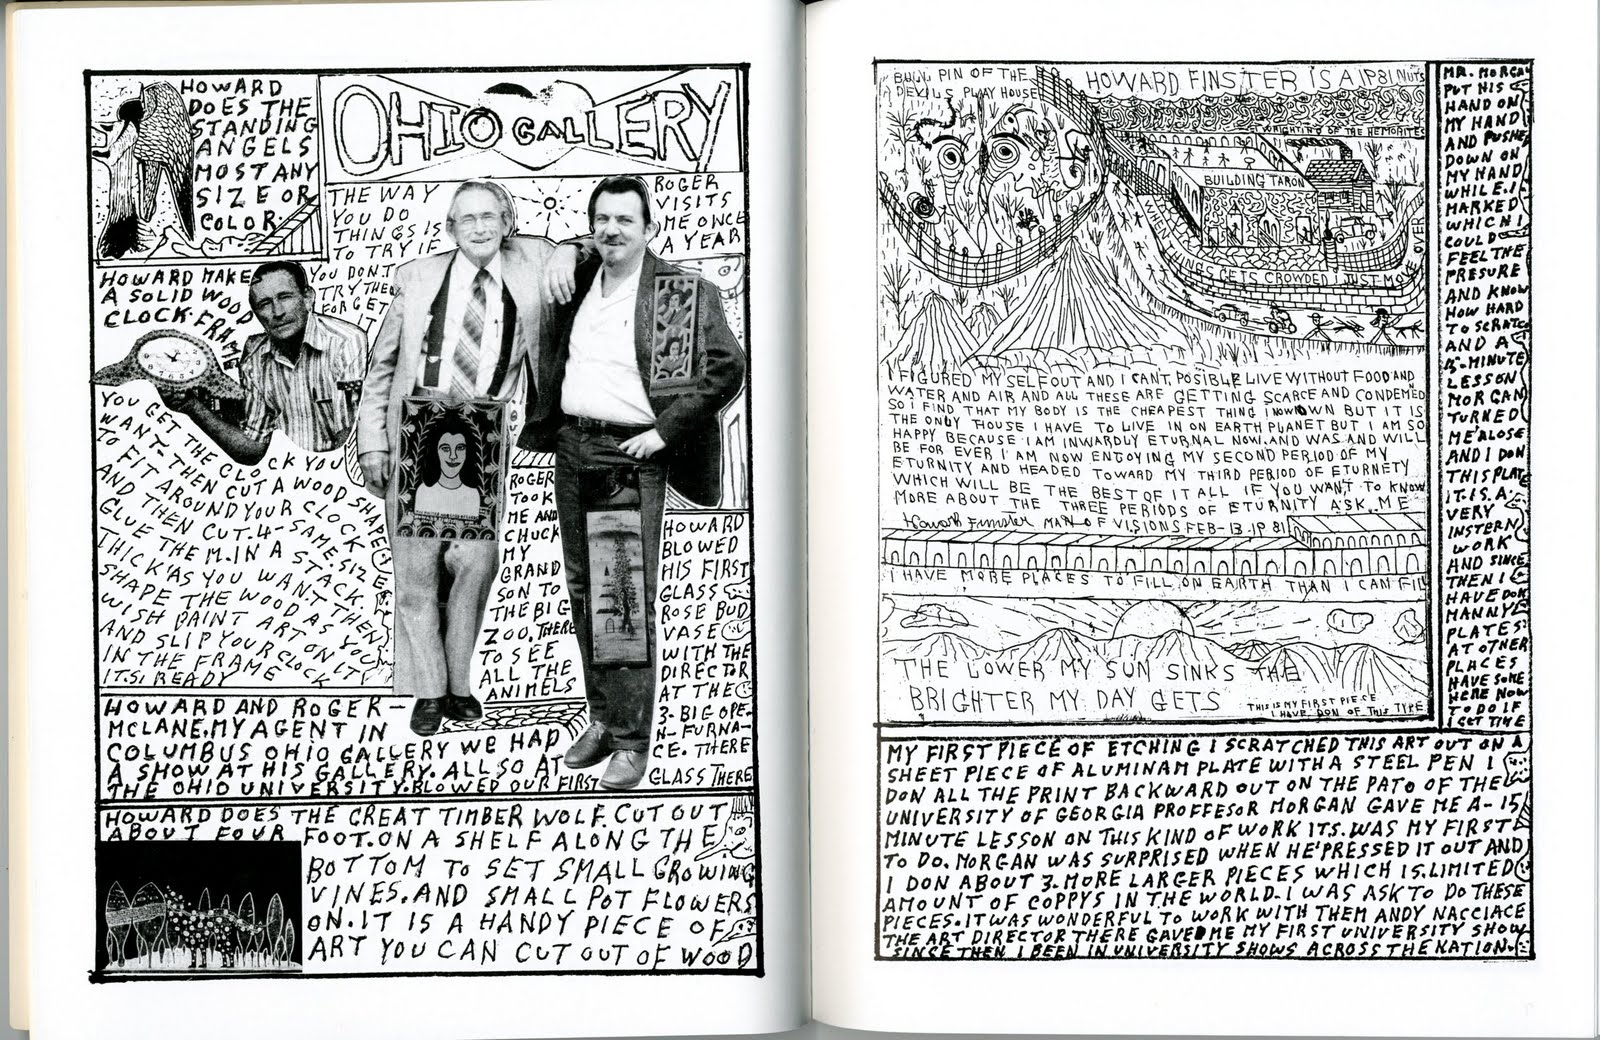 HOWARD
DOES THE
STANDING
ANGELS
MOST ANY
SIZE OR
COLOR.
OHIO GALLERY
THE WAY
YOU DO
THINGS IS
TO TRY IF
YOU DONT
TRY THEN
FORGET
IT
ROGER
VISITS
ME ONCE
A YEAR
HOWARD MAKE
A SOLID WOOD
CLOCK. FRAME
YOU GET THE CLOCK YOU
WANT-THEN CUT A WOOD SHAPE
TO FIT AROUND YOUR CLOCK
AND THEN CUT-4-SAME.SIZE
GLUE THEM.IN A STACK.
THICK AS YOU WANT THEN
SHAPE THE WOOD AS YOU
WISH PAINT ART ON IT
AND SLIP YOUR CLOCK
IN THE FRAME
IT.S. READY
ROGER
TOOK
ME AND
CHUCK
MY
GRAND
SON TO
THE BIG
ZOO. THERE
TO SEE
ALL THE
ANIMELS
HOWARD
BLOWED
HIS FIRST
GLASS
ROSE BUD
VASE
WITH THE
DIRECTOR
AT THE
3-BIG OPE-
N-FURNA-
CE. THERE
GLASS THERE
HOWARD AND ROGER-
MCLANE.MY AGENT IN
COLUMBUS OHIO GALLERY WE HAD
A SHOW AT HIS GALLERY. ALL SO AT
THE OHIO UNIVERSITY.BLOWED OUR FIRST
HOWARD DOES THE GREAT TIMBER WOLF. CUT OUT
ABOUT FOUR FOOT.ON A SHELF ALONG THE
BOTTOM TO SET SMALL GROWING
VINES.AND SMALL POT FLOWERS
ON.IT IS A HANDY PIECE OF
ART YOU CAN CUT OUT OF WOOD
BULL PIN OF THE
DEVILS PLAY HOUSE
HOWARD FINSTER IS A 1P81 NUTS
WRIGHTING OF THE HEMORITES
BUILDING TARON
WHEN THINGS GETS CROWDED I JUST MOVE OVER
I FIGURED MY SELF OUT AND I CANT POSIBLE LIVE WITHOUT FOOD AND
WATER AND AIR AND ALL THESE ARE GETTING SCARCE AND CONDEMED
SO I FIND THAT MY BODY IS THE CHEAPEST THING I NOW OWN BUT IT IS
THE ONLY HOUSE I HAVE TO LIVE IN ON EARTH PLANET BUT I AM SO
HAPPY BECAUSE I AM INWARDLY ETURNAL NOW.AND WAS AND WILL
BE FOR EVER I AM NOW ENJOYING MY SECOND PERIOD OF MY
ETURNITY AND HEADED TOWARD MY THIRD PERIOD OF ETURNETY
WHICH WILL BE THE BEST OF IT ALL IF YOU WANT TO KNOW
MORE ABOUT THE THREE PERIODS OF ETURNITY ASK ME
Howard Finster MAN OF VISIONS FEB-13-1P 81
I HAVE MORE PLACES TO FILL ON EARTH THAN I CAN FILL
THE LOWER MY SUN SINKS THE
BRIGHTER MY DAY GETS
THIS IS MY FIRST PIESE
I HAVE DON OF THIS TYPE
MR. MORGAN
PUT HIS
HAND ON
MY HAND
AND PUSHE
DOWN ON
MY HAND
WHILE.I
MARKED
WHICH I
COULD
FEEL THE
PRESURE
AND KNOW
HOW HARD
TO SCRATCH
AND A
15-MINUTE
LESSON
MORGAN
TURNED
ME ALOSE
AND I DON
THIS PLATE
IT.IS.A.
VERY
INSTERN
WORK
AND SINCE
THEN I
HAVE DON
MANNY
PLATES
AT OTHER
PLACES
HAVE SOME
HERE NOW
TO DO IF
I GET TIME
MY FIRST PIECE OF ETCHING I SCRATCHED THIS ART OUT ON A
SHEET PIECE OF ALUMINAM PLATE WITH A STEEL PEN I
DON ALL THE PRINT BACKWARD OUT ON THE PATO OF THE
UNIVERSITY OF GEORGIA PROFFESOR MORGAN GAVE ME A-15
MINUTE LESSON ON THIS KIND OF WORK ITS.WAS MY FIRST
TO DO. MORGAN WAS SURPRISED WHEN HE PRESSED IT OUT AND
I DON ABOUT 3.MORE LARGER PIECES WHICH IS.LIMITED
AMOUNT OF COPPYS IN THE WORLD.I WAS ASK TO DO THESE
PIECES.IT WAS WONDERFUL TO WORK WITH THEM ANDY NACCIACE
THE ART DIRECTOR THERE GAVE ME MY FIRST UNIVERSITY SHOW
SINCE THEN I BEEN IN UNIVERSITY SHOWS ACROSS THE NATION.